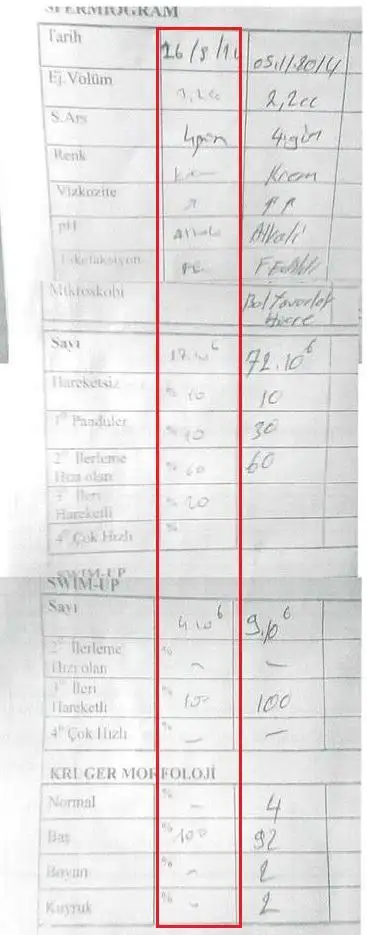 SPERMIOGRAM
Tarih 26/8/14 05.1.2014
Ej. Volüm 2,2cc
S.Ars 4gün 4gün
Renk Krem
Vizkozite
pH Alkali Alkali
Likefaksiyon
Mikroskobi Bol Yuvarlak
Hücre
Sayı 17.10⁶ 72.10⁶
Hareketsiz % 10 10
1° Panduler % 10 30
2° İlerleme % 60 60
Hızı olan
3° İleri % 20
Hareketli
4° Çok Hızlı %
SWIM-UP
SWIM-UP
Sayı 4.10⁶ 9.10⁶
2° İlerleme % - -
Hızı olan
3° İleri % 100 100
Hareketli
4° Çok Hızlı % - -
KRUGER MORFOLOJİ
Normal % - 4
Baş % 100 92
Boyun % - 2
Kuyruk % - 2